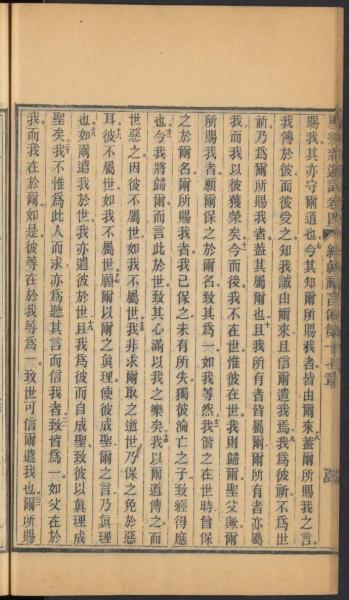 聖經新遺詔卷四 約翰福音傳第十七章
賜我其亦守爾道也七今其知爾所賜我者皆由爾來八蓋爾所賜我之言
我傳於彼而彼受之知我誠由爾來且信爾遣我焉九我為彼祈不為世
祈乃為爾所賜我者蓋其屬爾也十且我所有者皆屬爾爾所有者亦屬
我而我以彼獲榮矣十一今而後我不在世惟彼在世我則歸爾聖父歟爾
所賜我者願爾保之於爾名致其為一如我等然十二我偕之在世時曾保
之於爾名爾所賜我者我已保之未有所失獨彼淪亡之子致經得應
也十三今我將歸爾而言此於世致其心滿以我之樂矣十四我以爾道傳之而
世惡之因彼不屬世如我不屬世十五我非求爾取之逝世乃保之免於惡
耳十六彼不屬世如我不屬世十七願爾以爾之眞理使彼成聖爾之言乃眞理
也十八如爾遣我於世我亦遣彼於世十九且我為彼而自成聖致彼以眞理成
聖矣二十我不惟為此人而求亦為聽其言而信我者二一致皆為一如父在於
我而我在於爾如是彼等在於我等為一致世可信爾遣我也二二爾所賜